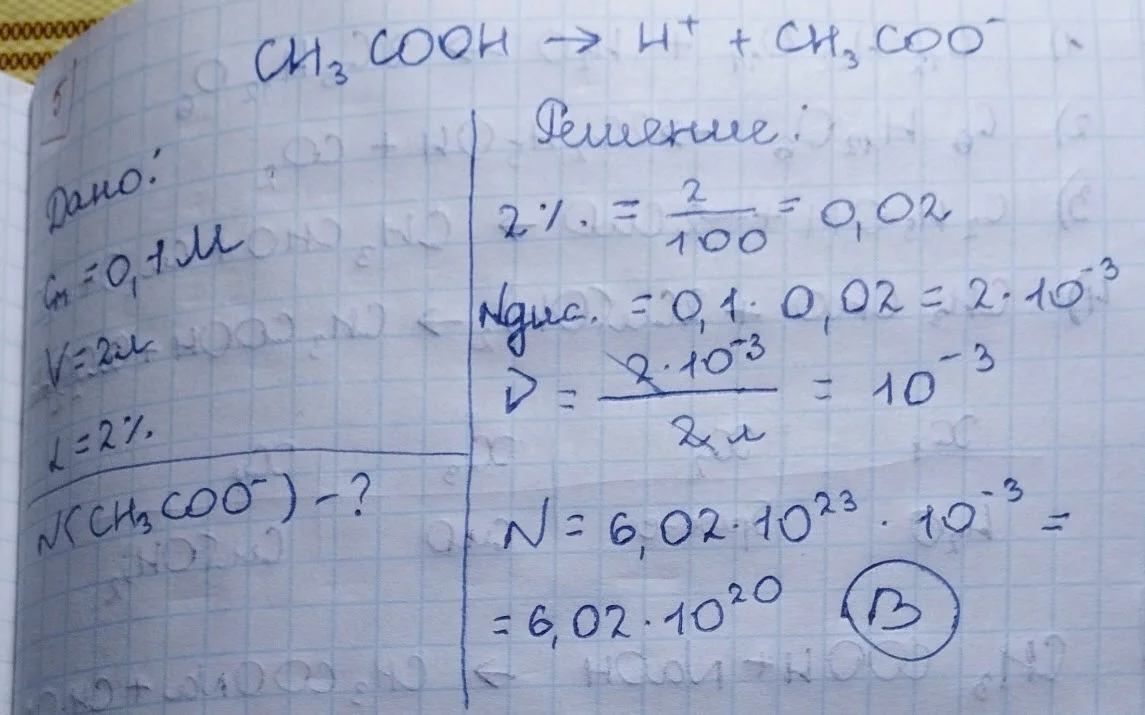 CH₃COOH → H⁺ + CH₃COO⁻
5
Дано:
Cₘ = 0,1 М
V = 2л
α = 2%.
N(CH₃COO⁻) - ?
Решение:
2%. = 2/100 = 0,02
Nдис. = 0,1 · 0,02 = 2 · 10⁻³
ν = 2 · 10⁻³ / 2 л = 10⁻³
N = 6,02 · 10²³ · 10⁻³ =
= 6,02 · 10²⁰ В